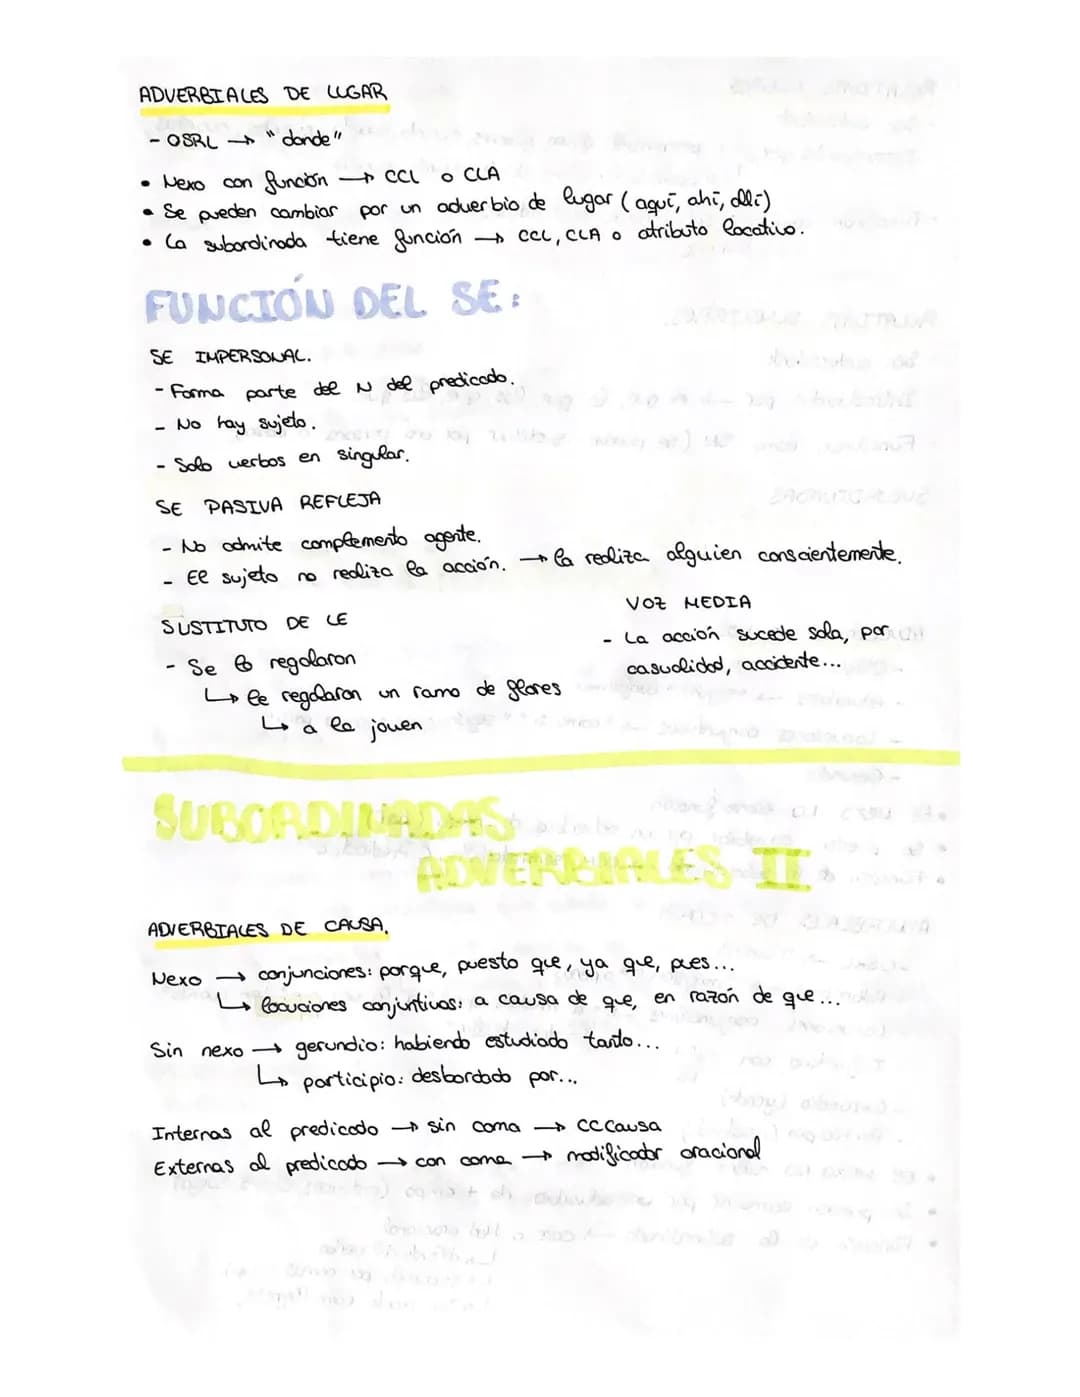 ADVERBIALES DE LUGAR
- OSRL → "donde"
• Nexo con función → CCL o CLA
• Se pueden cambiar por un adverbio de lugar (aquí, ahí, allí)
• La subordinada tiene función → CCL, CLA o atributo locativo.
FUNCIÓN DEL SE:
SE IMPERSONAL.
- Forma parte del N del predicado.
- No hay sujeto.
- Solo verbos en singular.
SE PASIVA REFLEJA
- No admite complemento agente.
- El sujeto no realiza la acción. → la realiza alguien conscientemente.
SUSTITUTO DE LE
- Se lo regalaron
↳ le regalaron un ramo de flores
↳ a la joven
VOZ MEDIA
- La acción sucede sola, por
casualidad, accidente...
SUBORDINADAS
ADVERBIALES II
ADVERBIALES DE CAUSA.
Nexo → conjunciones: porque, puesto que, ya que, pues...
↳ locuciones conjuntivas: a causa de que, en razón de que...
Sin nexo → gerundio: habiendo estudiado tanto...
↳ participio: desbordado por...
Internas al predicado → sin coma → CCCausa
Externas al predicado → con coma → modificador oracional